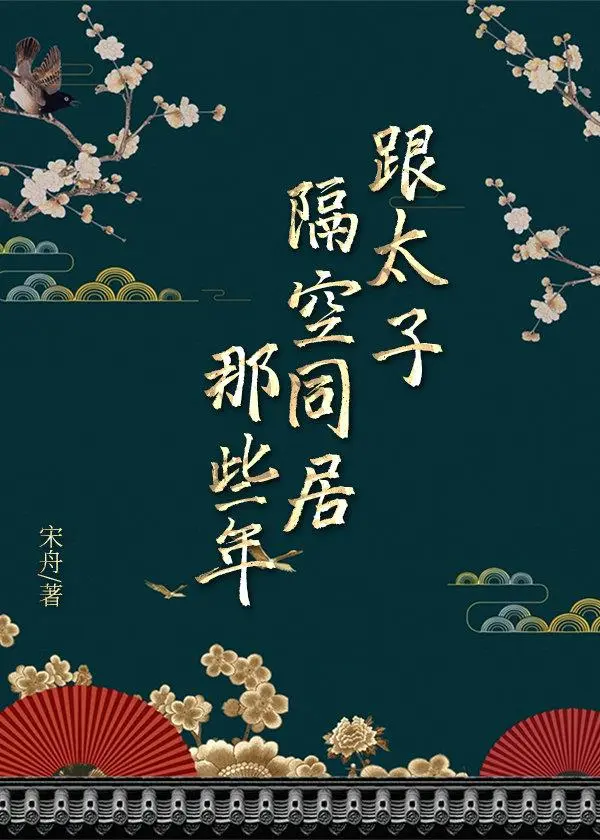 跟太子
隔空同居
那些年
宋舟/著